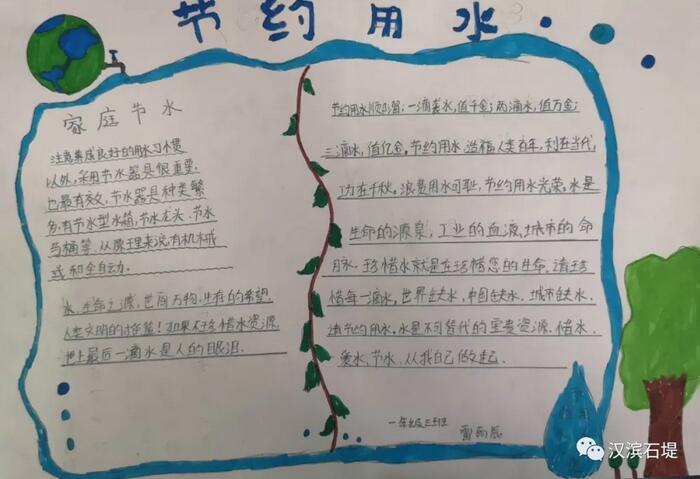 节约用水
家庭节水
注意养成良好的用水习惯
以外,采用节水器具很重要,
也最有效,节水器具种类繁
多,有节水型水箱,节水龙头、节水
马桶等,从原理来说,有机械
或和全自动.
水,生命之源,世间万物,生存的希望,
人类文明的
如果不珍惜水资源,
地上最后一滴水是人的眼泪.
节约用水顺口溜,一滴凑水,值千金;两滴水,值万金;
三滴水,值亿金.节约用水,造福人类百年,利在当代,
功在千秋.浪费用水可耻,节约用水光荣.水是
生命的源泉,工业的血液,城市的命
月永.珍惜水就是在珍惜您的生命.请珍
惜每一滴水,世界缺水,中国缺水,城市缺水.
请节约用水.水是不可替代的重要资源.借水、
爱水、节水、从我自己做起.
一年级三班
汉滨石堤